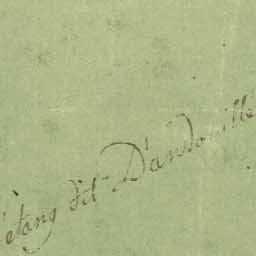 étang dit D'andouillé